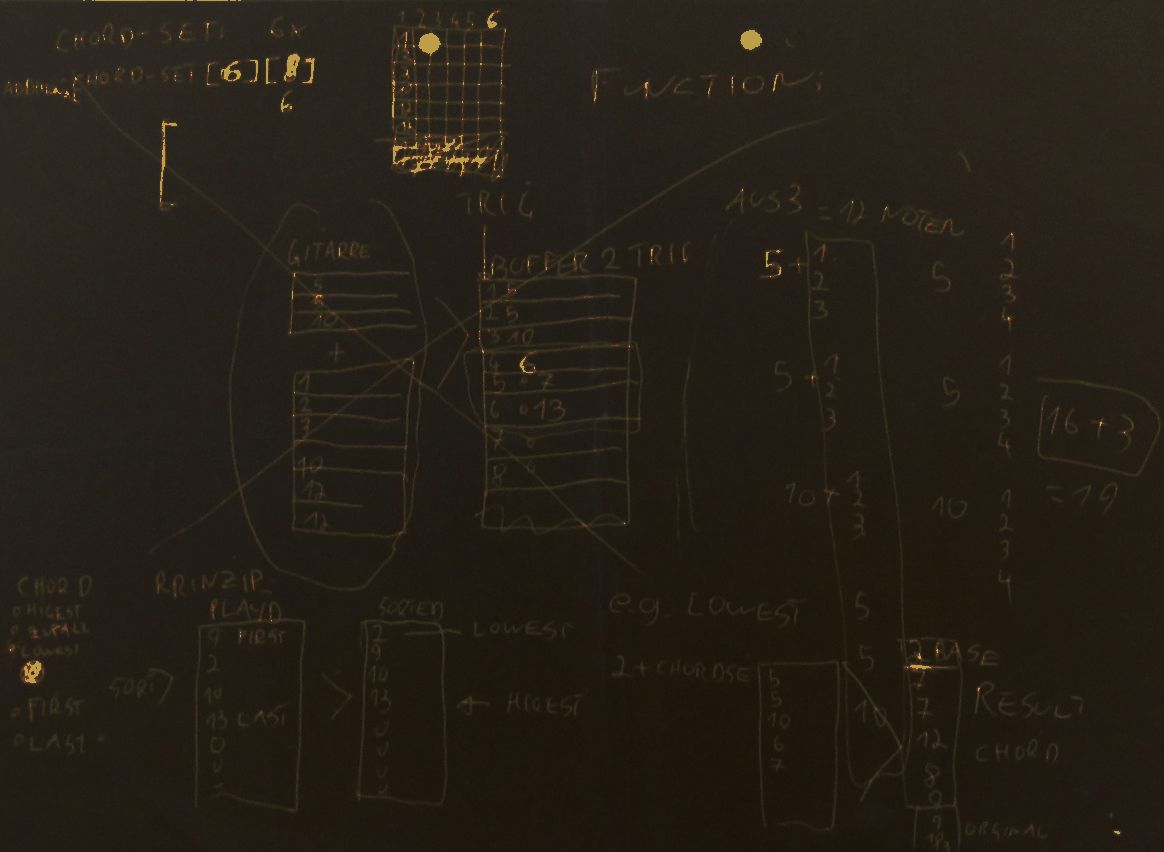 CHORD-SET: 6x
CHORD-SET [6][8]
6
1 2 3 4 5 6
FUNCTION:
TRIG
AUS 3 = 12 NOTEN
GITARRE
5
10
+
1
2
3
10
12
12
BUFFER 2 TRIG
1 5
2 5
3 10
4 6
5 7
6 13
7
8
5 + 1
2
3
5 + 1
2
3
10 + 1
2
3
5
5
10
1
2
3
4
1
2
3
4
1
2
3
4
16 + 3
= 19
CHORD
HIGEST
ZUFALL
LOWEST
FIRST
LAST
PRINZIP:
PLAYD
9 FIRST
2
10
13 LAST
0
SORT
SORTED
2
9
10
13
LOWEST
HIGEST
e.g. LOWEST
2 + CHORDSE
5
5
10
6
7
5
5
10
2 BASE
7
7
12
8
9
RESULT
CHORD
ORGINAL